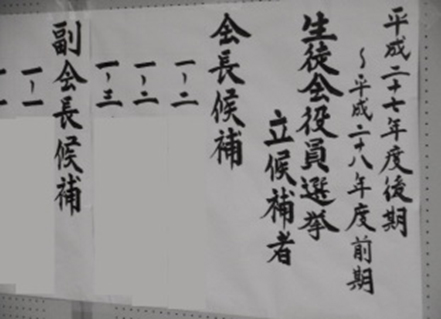 平成二十七年度後期
～平成二十八年度前期
生徒会役員選挙
立候補者
会長候補
一－二
一－二
一－三
副会長候補
一－一